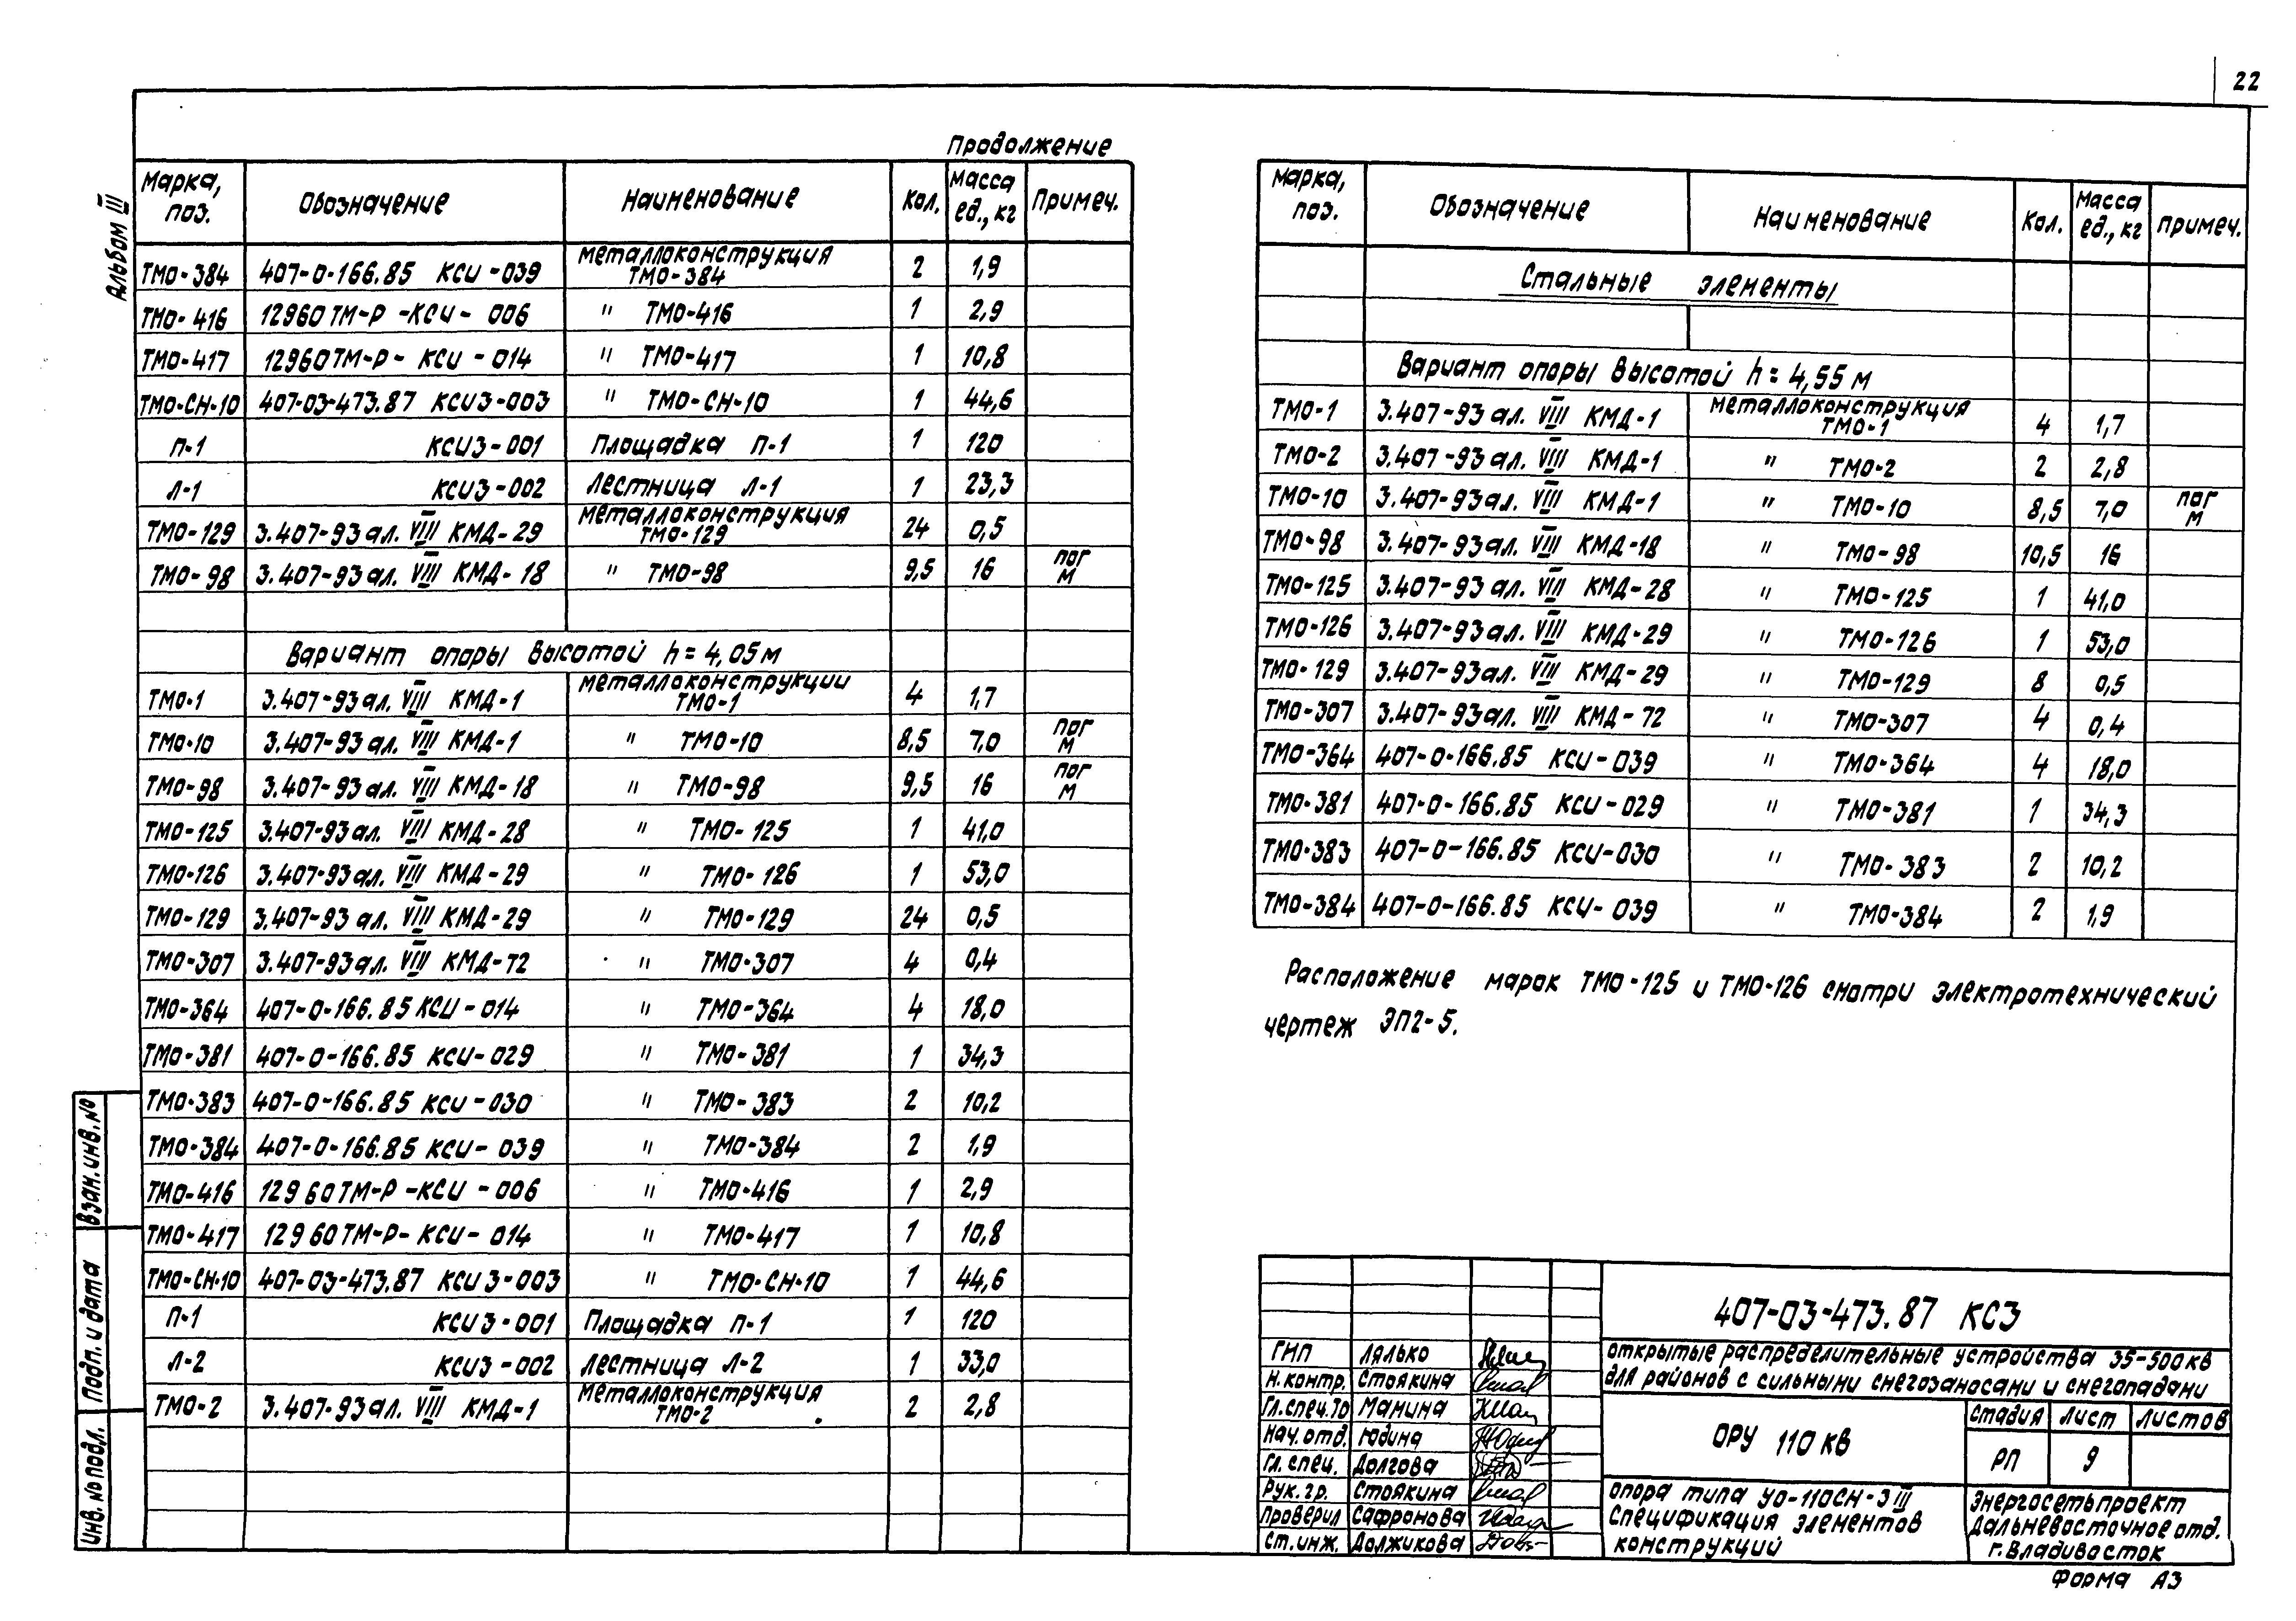 22
Альбом III
Продолжение
Марка, поз. Обозначение Наименование Кол. Масса ед., кг Примеч.
ТМО-384 407-0-166.85 КСИ-039 Металлоконструкция ТМО-384 2 1,9
ТМО-416 12960ТМ-Р-КСИ-006 " ТМО-416 1 2,9
ТМО-417 12960ТМ-Р-КСИ-014 " ТМО-417 1 10,8
ТМО-СН-10 407-03-473.87 КСИ3-003 " ТМО-СН-10 1 44,6
П-1 КСИ3-001 Площадка П-1 1 120
Л-1 КСИ3-002 Лестница Л-1 1 23,3
ТМО-129 3.407-93 ал. VIII КМД-29 Металлоконструкция ТМО-129 24 0,5
ТМО-98 3.407-93 ал. VIII КМД-18 " ТМО-98 9,5 16 пог м
Вариант опоры высотой h=4,05м
ТМО-1 3.407-93 ал. VIII КМД-1 Металлоконструкции ТМО-1 4 1,7
ТМО-10 3.407-93 ал. VIII КМД-1 " ТМО-10 8,5 7,0 пог м
ТМО-98 3.407-93 ал. VIII КМД-18 " ТМО-98 9,5 16 пог м
ТМО-125 3.407-93 ал. VIII КМД-28 " ТМО-125 1 41,0
ТМО-126 3.407-93 ал. VIII КМД-29 " ТМО-126 1 53,0
ТМО-129 3.407-93 ал. VIII КМД-29 " ТМО-129 24 0,5
ТМО-307 3.407-93 ал. VIII КМД-72 " ТМО-307 4 0,4
ТМО-364 407-0-166.85 КСИ-014 " ТМО-364 4 18,0
ТМО-381 407-0-166.85 КСИ-029 " ТМО-381 1 34,3
ТМО-383 407-0-166.85 КСИ-030 " ТМО-383 2 10,2
ТМО-384 407-0-166.85 КСИ-039 " ТМО-384 2 1,9
ТМО-416 12960ТМ-Р-КСИ-006 " ТМО-416 1 2,9
ТМО-417 12960ТМ-Р-КСИ-014 " ТМО-417 1 10,8
ТМО-СН-10 407-03-473.87 КСИ3-003 " ТМО-СН-10 1 44,6
П-1 КСИ3-001 Площадка П-1 1 120
Л-2 КСИ3-002 Лестница Л-2 1 33,0
ТМО-2 3.407-93 ал. VIII КМД-1 Металлоконструкция ТМО-2 2 2,8
Марка, поз. Обозначение Наименование Кол. Масса ед., кг Примеч.
Стальные элементы
Вариант опоры высотой h=4,55м
ТМО-1 3.407-93 ал. VIII КМД-1 Металлоконструкция ТМО-1 4 1,7
ТМО-2 3.407-93 ал. VIII КМД-1 " ТМО-2 2 2,8
ТМО-10 3.407-93 ал. VIII КМД-1 " ТМО-10 8,5 7,0 пог м
ТМО-98 3.407-93 ал. VIII КМД-18 " ТМО-98 10,5 16
ТМО-125 3.407-93 ал. VIII КМД-28 " ТМО-125 1 41,0
ТМО-126 3.407-93 ал. VIII КМД-29 " ТМО-126 1 53,0
ТМО-129 3.407-93 ал. VIII КМД-29 " ТМО-129 8 0,5
ТМО-307 3.407-93 ал. VIII КМД-72 " ТМО-307 4 0,4
ТМО-364 407-0-166.85 КСИ-039 " ТМО-364 4 18,0
ТМО-381 407-0-166.85 КСИ-029 " ТМО-381 1 34,3
ТМО-383 407-0-166.85 КСИ-030 " ТМО-383 2 10,2
ТМО-384 407-0-166.85 КСИ-039 " ТМО-384 2 1,9
Расположение марок ТМО-125 и ТМО-126 смотри электротехнический
чертеж ЭП2-5.
407-03-473.87 КС3
Открытые распределительные устройства 35-500кв
для районов с сильными снегозаносами и снегопадами
ГИП Лялько
Н.контр. Стоякина
Гл.спец.ТО Мамина
Нач. отд. Юдина
Гл. спец. Долгова
Рук. гр. Стоякина
Проверил Сафронова
Ст.инж. Должикова
ОРУ 110 кв
Стадия Лист Листов
РП 9
Опора типа УО-110СН-3 III
Спецификация элементов
конструкций
Энергосетьпроект
Дальневосточное отд.
г. Владивосток
Форма А3
Взам.инв.№
Подп. и дата
Инв. № подл.